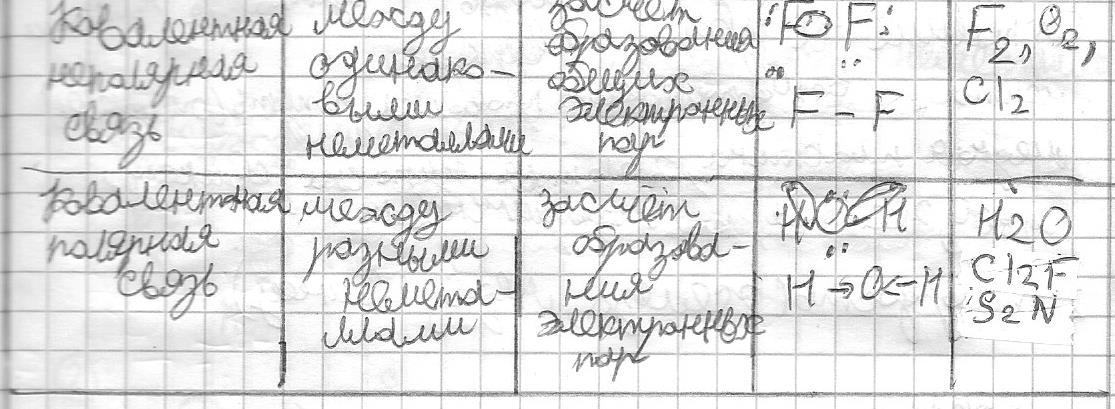 Ковалентная
неполярная
связь
между
одинако-
выми
неметаллами
засчёт
образования
общих
электронных
пар
F F
F - F
F2, O2,
Cl2
Ковалентная
полярная
связь
между
разными
немета-
ллами
засчёт
образова-
ния
электронных
пар
H O H
H → O ← H
H2O
Cl2F
S2N